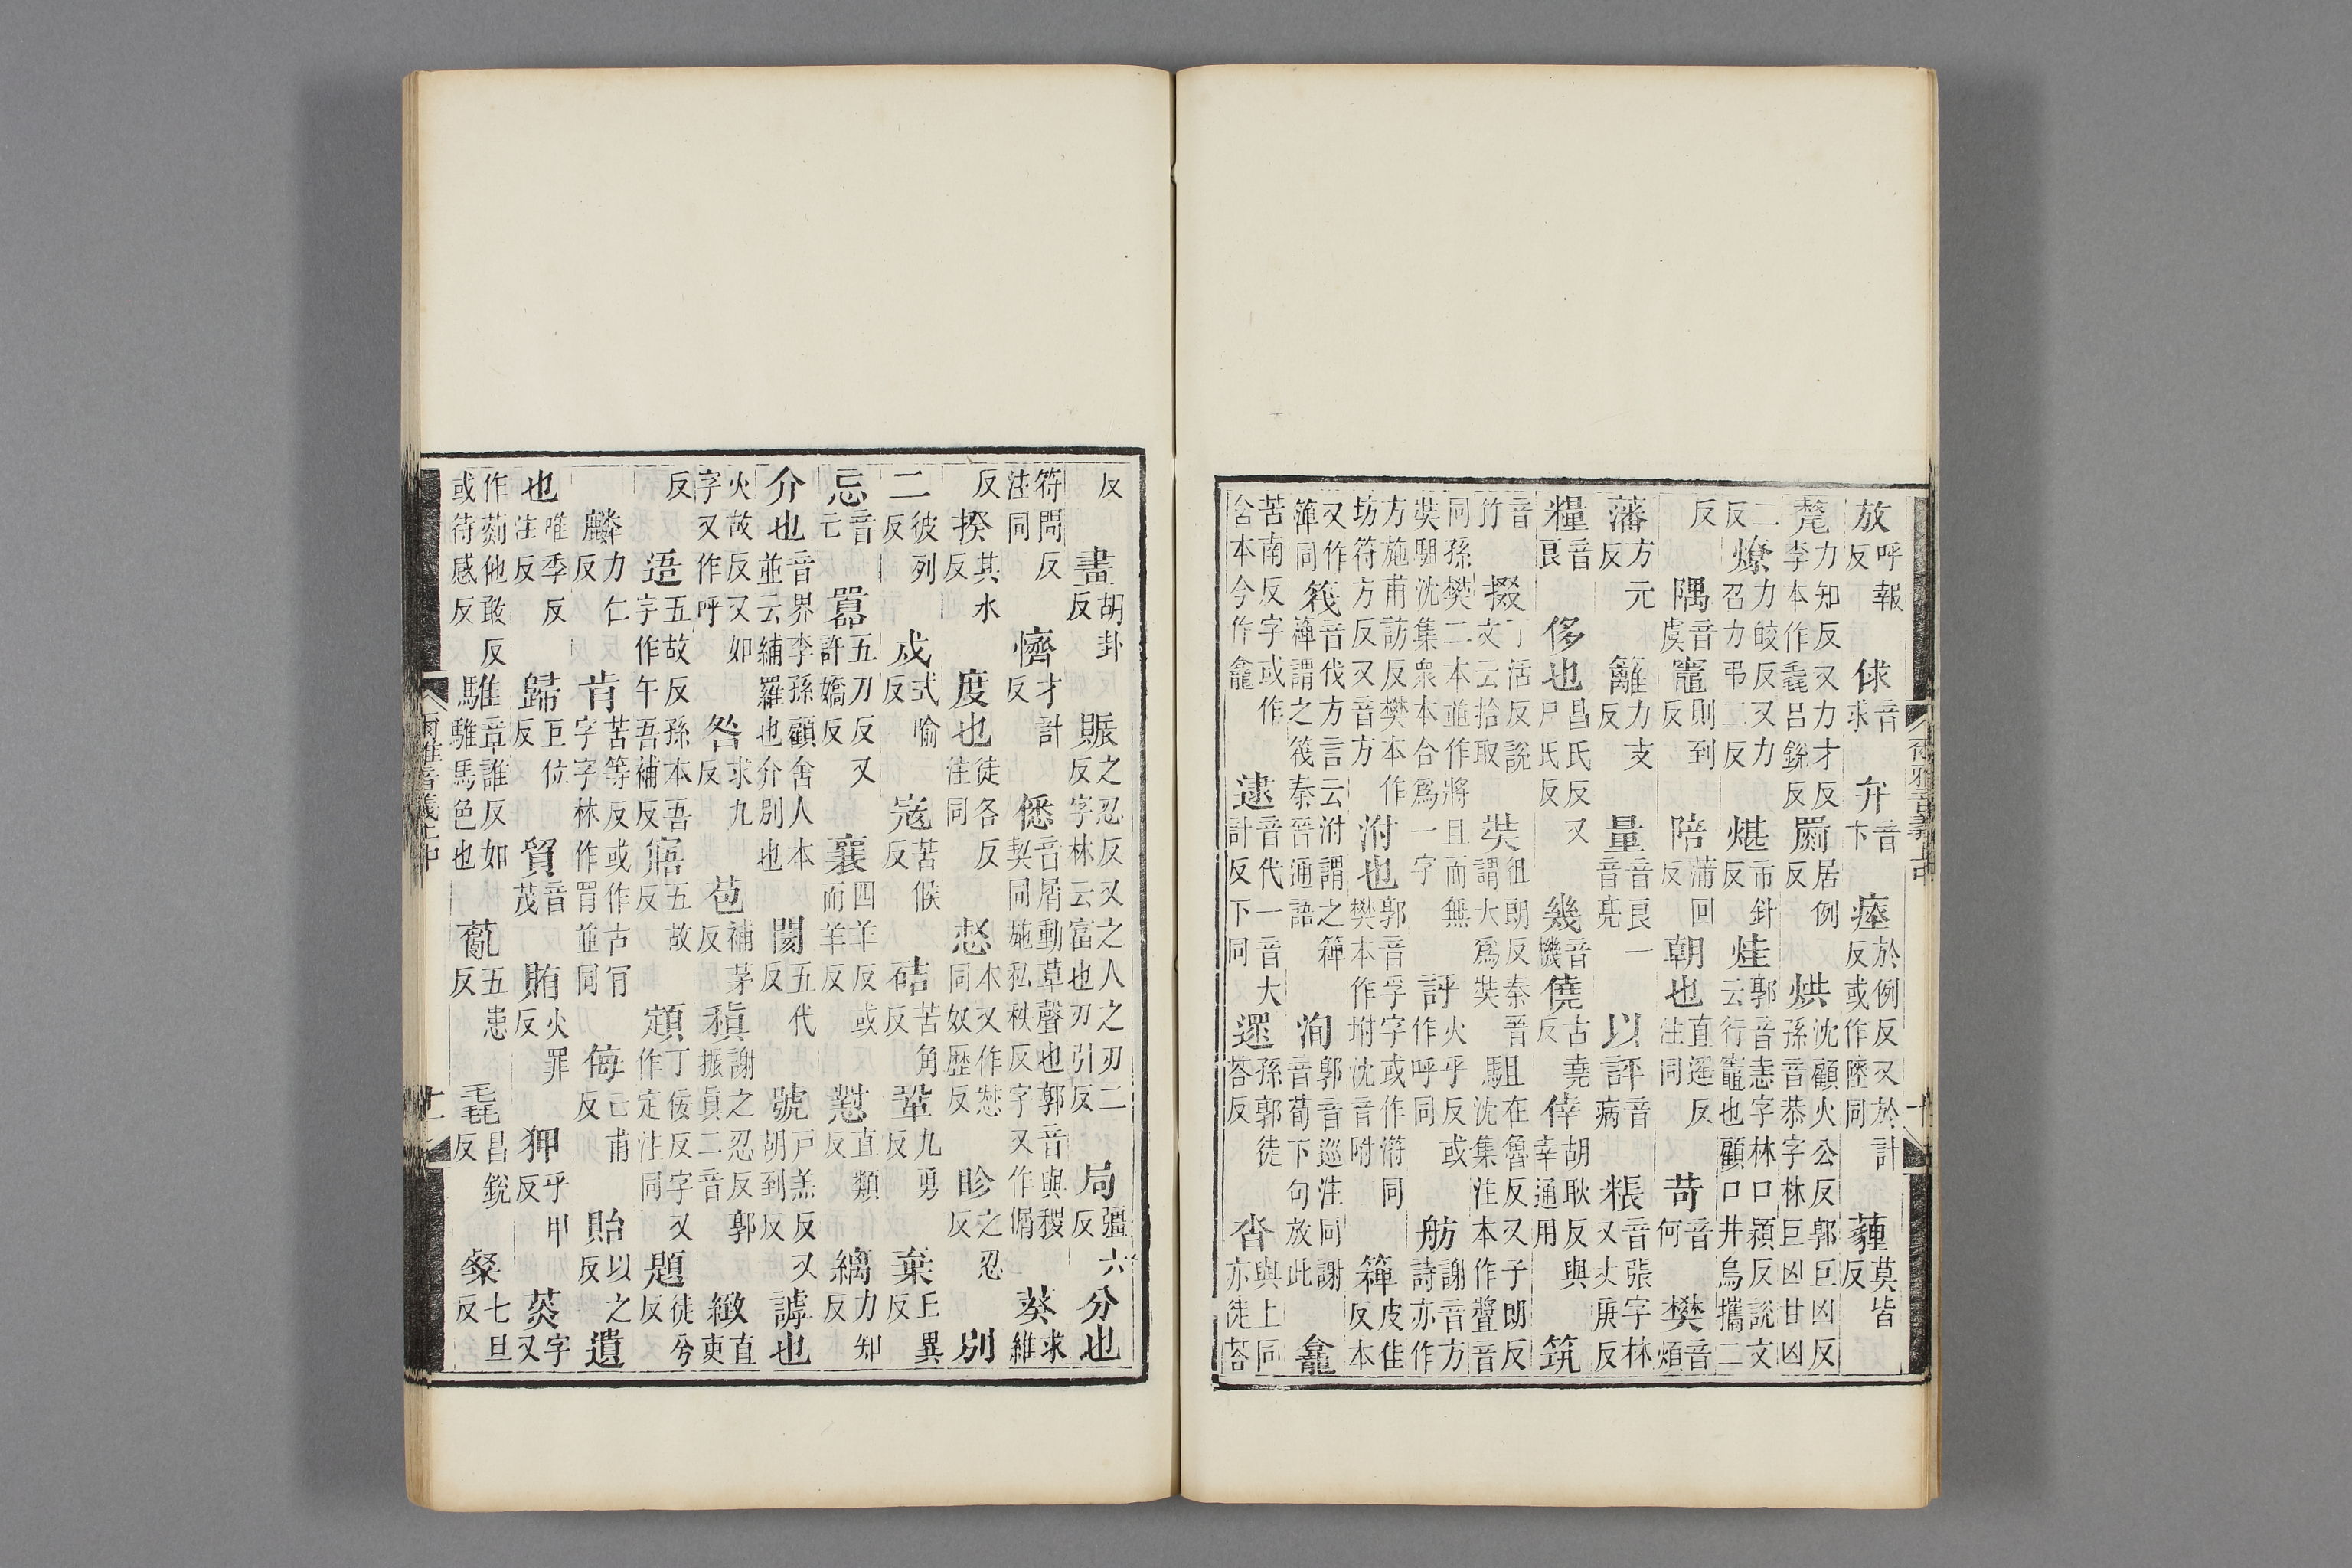 放呼報反俅音求弁音卞瘞於例反又於計反或作同薶莫皆反
氂力知反又力才反李本作毳吕銳反罽居例反烘沈顧火公反郭巨凶反孫音恭字林巨凶甘凶
二反燎力皎反又力召力弔二反煁市針反烓郭音恚字林口潁反說文云行竈也顧口井烏攜二
反隅音虞竈則到反陪蒲回反朝也直遥反注同苛音何樊音煩
藩方元反籬力支反量音良一音亮以評音病粻音張字林又丈庚反
糧音良侈也昌氏反又尸氏反幾音機僥古堯反倖胡耿反與幸通用筑
音竹掇丁活反說文云拾取奘徂朗反秦晉謂大爲奘駔在魯反又子朗反沈集注本作音
同孫樊二本並作將且而無奘駔沈集衆本合爲一字評火乎反或作呼同舫謝音方詩亦作
方施甫訪反樊本作坊符方反又音方泭也郭音孚字或作同樊本作坿沈音附簰皮佳反本
又作箄同筏音伐方言云泭謂之箄箄謂之筏秦晉通語洵郭音巡注同謝音荀下句放此龕
苦南反字或作含本今作龕逮音代一音大計反下同遝孫郭徒荅反沓與上同亦徒荅
爾雅音義上中 十
反畫胡卦反賑之忍反又之人之刃二反字林云富也刃引反局疆六反分也
符問反注同懠才計反僁音屑動草聲也郭音與稧契同施私秩反字又作偦葵求維
反揆其水反度也徒各反注同惄本又作愵同奴歷反畛之忍反别
二彼列反戍式喻反寇苦候反硈苦角反鞏九勇反棄丘異反
忘音亡囂五刀反又許嬌反襄四羊反或而羊反懟直類反縭力知反
介也音界李孫顧舍人本並云縭羅也介别也閡五代反號戶羔反又胡到反謼也
火故反又如字又作呼咎求九反苞補茅反稹謝之忍反郭振眞二音緻直吏
反逜五故反孫本吾字作午吾補反寤五故反顁丁佞反字又作定注同題徒兮反
麟力仁反肯苦等反或作古肎字字林作肎並同侮亡甫反貽以之反遺
也唯季反注反歸巨位反貿音茂賄火罪反狎乎甲反菼字又
作䓲他敢反或待感反騅章誰反如騅馬色也薍五患反毳昌銳反粲七旦反
爾雅音義上中 十一